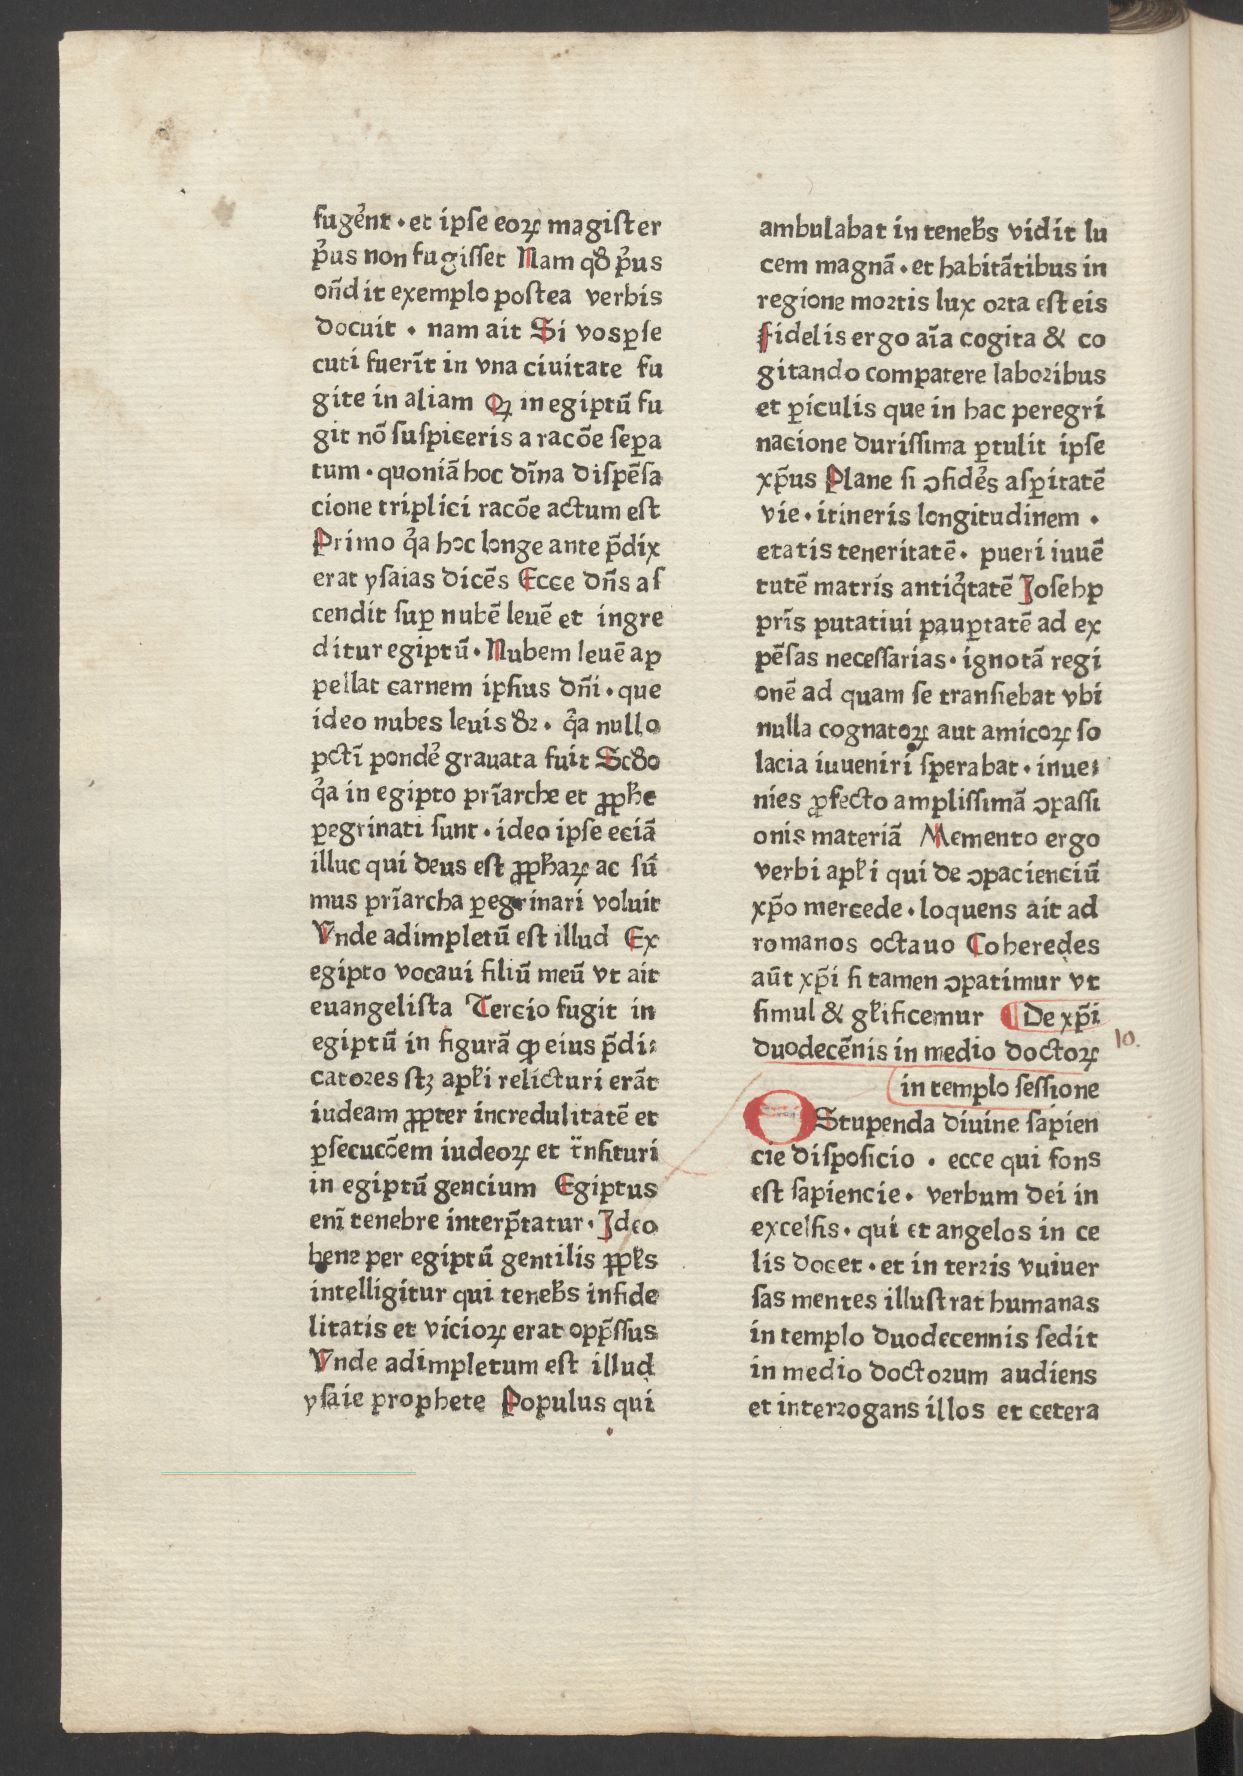 fugēnt · et ipſe eoꝝ magiſter
pͥus non fugiſſet Nam qd̾ pͥus
oñdit exemplo poſtea verbis
docuit · nam ait Si vos ꝑſe
cuti fuerīt in vna ciuitate fu
gite in aliam Qꝫ in egiptū fu
git nō ſuſpiceris a racōe ſepa
tum · quoniā hoc dīna diſpēſa
cione triplici racōe actum eſt
Primo qͥa hoc longe ante p̄dix
erat yſaias dicēs Ecce dn̄s aſ
cendit ſuꝑ nubē leuē et ingre
ditur egiptū · Nubem leuē ap
pellat carnem ipſius dn̄i · que
ideo nubes leuis dꝛ · qͥa nullo
pctī pondē grauata fuit Scd̾o
qͥa in egipto pr̄iarche et ꝓpħe
ꝑegrinati ſunt · ideo ipſe eciā
illuc qui deus eſt ꝓpħaꝝ ac ſū
mus pr̄iarcha ꝑegrinari voluit
Vnde adimpletū eſt illud Ex
egipto vocaui filiū meū vt ait
euangeliſta Tercio fugit in
egiptū in figurā ꝙ eius p̄di⸗
catores ſꝫ apłi relicturi erāt
iudeam ꝓpter incredulitatē et
ꝑſecucōem iudeoꝝ et trͣnſituri
in egiptū gencium Egiptus
eni̅ tenebre interp̄tatur · Ideo
bene per egiptū gentilis ꝓpłs
intelligitur qui teneb̾s infide
litatis et vicioꝝ erat opp̄ſſus
Vnde adimpletum eſt illud
yſaie prophete Populus qui
ambulabat in teneb̾s vidit lu
cem magnā · et habitātibus in
regione moꝛtis lux oꝛta eſt eis
Fidelis ergo aīa cogita & co
gitando compatere laboꝛibus
et ꝑiculis que in hac peregri
nacione duriſſima ꝑtulit ipſe
xp̄us Plane ſi ꝯſidēs aſꝑitatē
vie · itineris longitudinem ·
etatis teneritatē · pueri iuuē
tutē matris antiqͥtatē Joſehp
pr̄is putatiui pauꝑtatē ad ex
pēſas neceſſarias · ignotā regi
onē ad quam ſe tranſiebat vbi
nulla cognatoꝝ aut amicoꝝ ſo
lacia iuueniri ſperabat · inue⸗
nies ꝓfecto ampliſſimā ꝯpaſſi
onis materiā Memento ergo
verbi apłi qui de ꝯpacienciū
xp̄o mercede · loquens ait ad
romanos octauo Coheredes
aūt xp̄i ſi tamen ꝯpatimur vt
ſimul & głificemur De xp̄i
duodecēnis in medio doctoꝝ
10.
in templo ſeſſione
O Stupenda diuine ſapien
cie diſpoſicio · ecce qui fons
eſt ſapiencie · verbum dei in
excelſis · qui et angelos in ce
lis docet · et in terꝛis vuiuer
ſas mentes illuſtrat humanas
in templo duodecennis ſedit
in medio doctoꝛum audiens
et interꝛogans illos et cetera